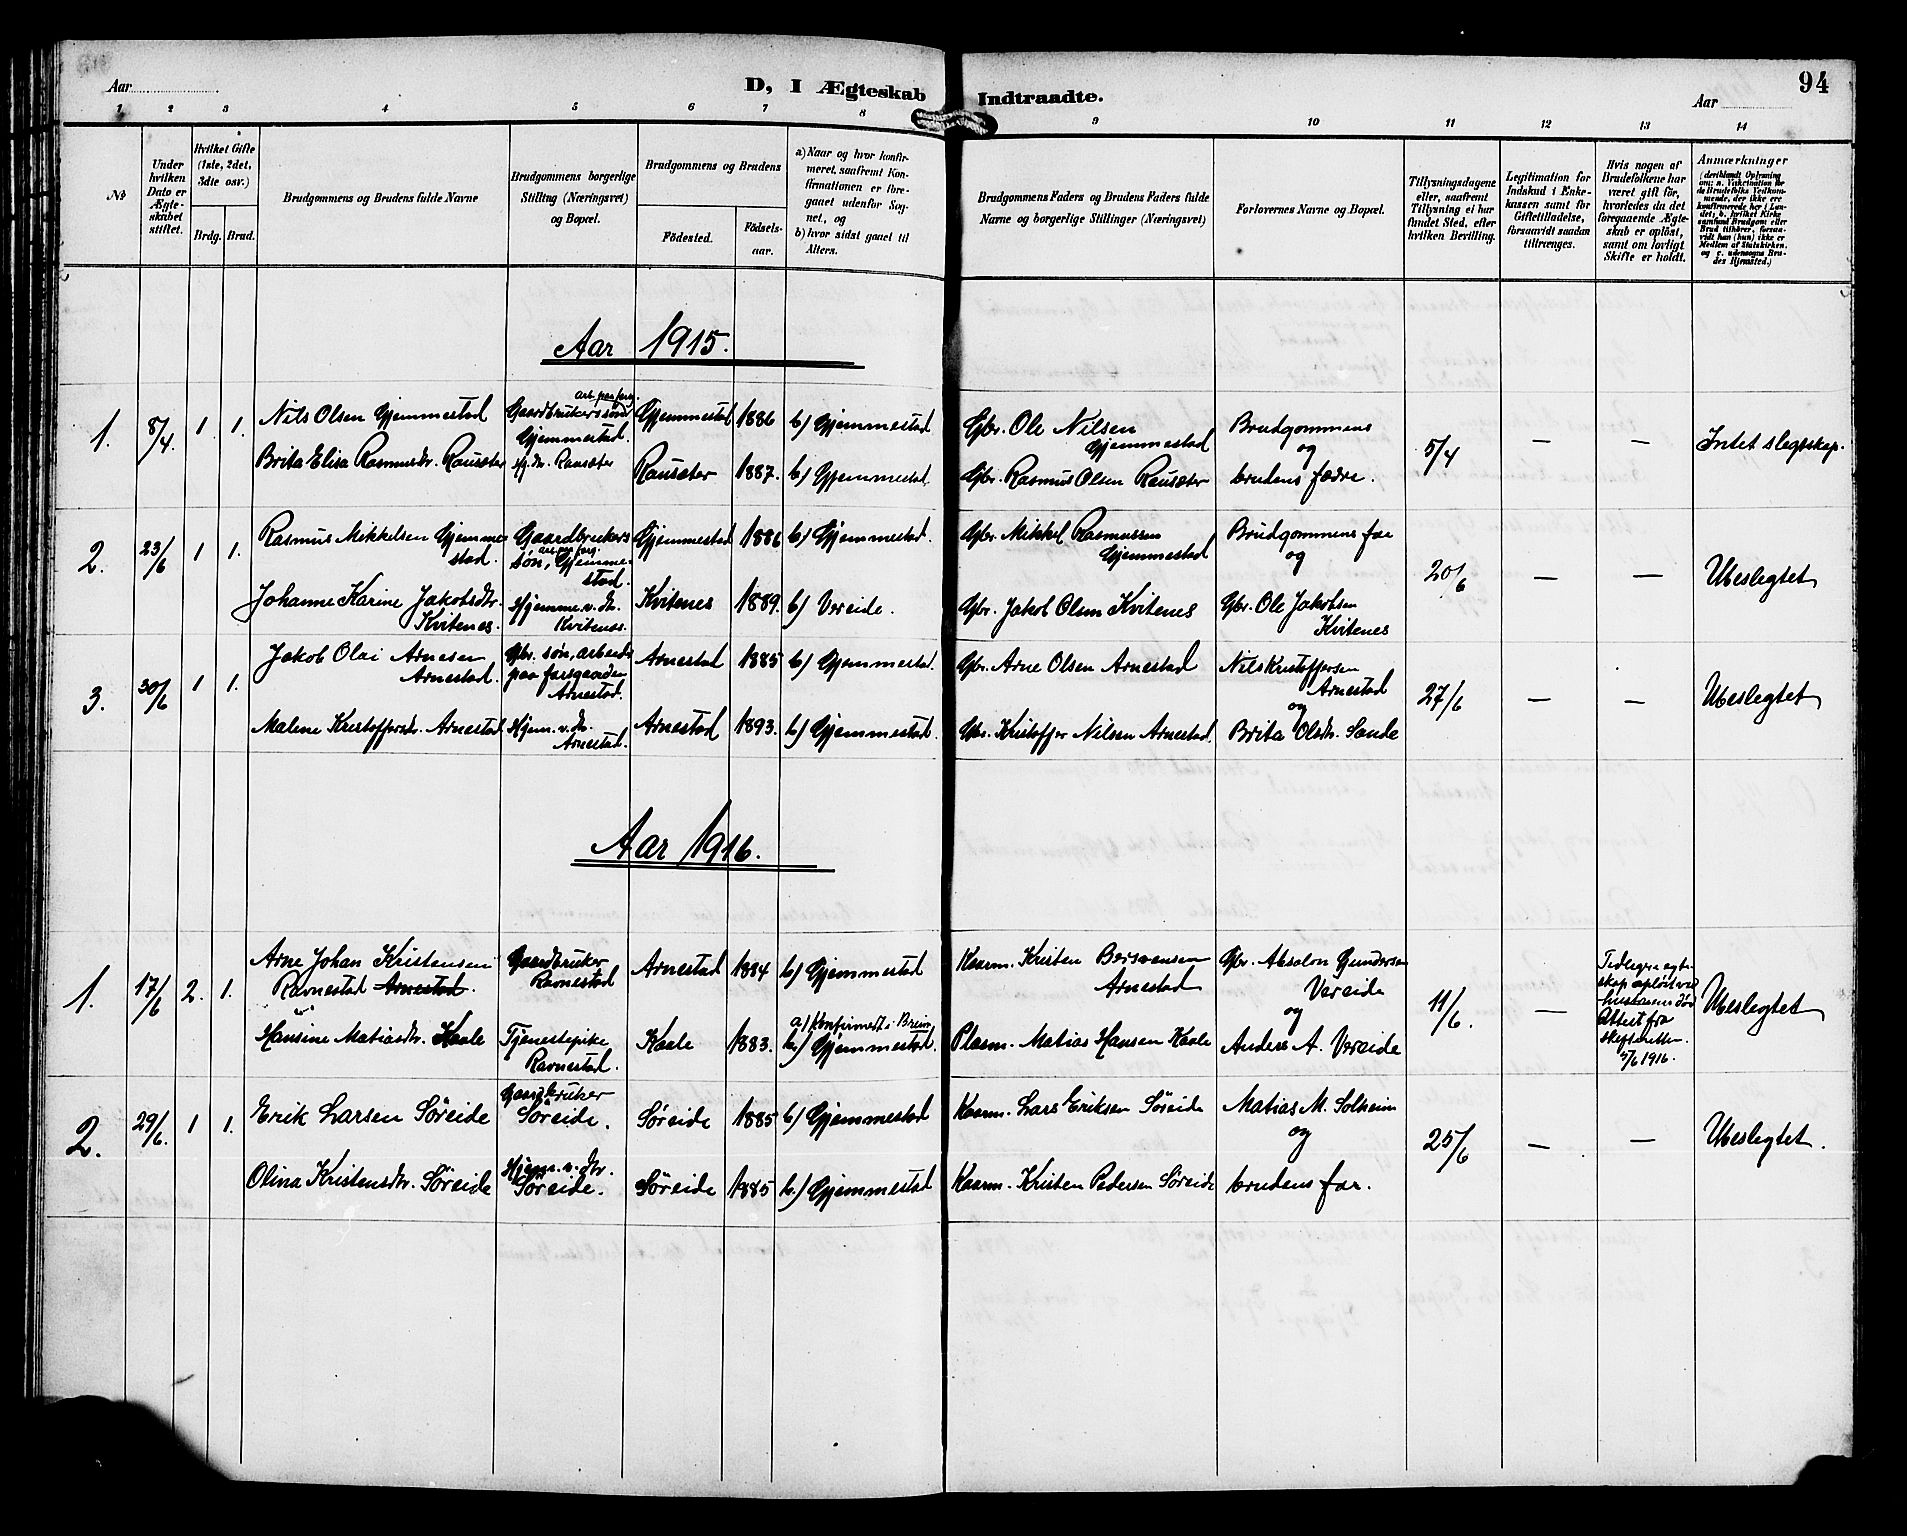 94
Aar
D, I Ægteskab Indtraadte.
Aar
1 2 3 4 5 6 7 8 9 10 11 12 13 14
No
Under hvilken Dato er Ægteskabet stiftet.
Hvilket Gifte (1ste, 2det, 3die osv.)
Brdg. Brud.
Brudgommens og Brudens fulde Navne
Brudgommens borgerlige Stilling (Næringsvei) og Bopæl.
Brudgommens og Brudens
Födested.
Födselsaar.
a) Naar og hvor konfirmeret, saafremt Konfirmationen er foregaaet udenfor Sognet, og
b) hvor sidst gaaet til Alters.
Brudgommens Faders og Brudens Faders fulde Navne og borgerlige Stillinger (Næringsvei)
Forlovernes Navne og Bopæl.
Tillysningsdagene eller, saafremt Tillysning ei har fundet Sted, efter hvilken Bevilling.
Legitimation for Indskud i Enkekassen samt for Giftetilladelse, forsaavidt saadan tiltrænges.
Hvis nogen af Brudefolkene har været gift för, hvorledes da det foregaaende Ægteskab er oplöst, samt om lovligt Skifte er holdt.
Anmærkninger
(deriblandt Oplysning om: a. Vakcination for de Brudefolks Vedkommende, der ikke ere konfirmerede her i Landet; b. hvilket Kirkesamfund Brudgom eller Brud tilhörer, forsaavidt han (hun) ikke er Medlem af Statskirken, og c. udensogns Brudes Hjemsted.)
Aar 1915.
1. 8/4. 1. 1.
Nils Olsen Gjemmestad
Gaardbrukerssøn arb. paa farg. Gjemmestad.
Gjemmestad 1886 b) Gjemmestad
Gbr. Ole Nilsen Gjemmestad
Brudgommens og
5/4 — — Intet slegtskap.
Brita Elisa Rasmusdr. Rausæter
Hj.dr. Rausæter
Rausæter 1887. b) Gjemmestad
Gbr. Rasmus Olsen Rausæter
brudens fædre.
2. 23/6 1 1.
Rasmus Mikkelsen Gjemmestad.
Gaardbrukers søn, arb. paa farg. Gjemmestad.
Gjemmestad 1886 b) Gjemmestad.
Gbr. Mikkel Rasmussen Gjemmestad
Brudgommens far og
20/6 — — Ubeslegtet
Johanne Karine Jakobsdtr. Kvitenes.
Hjemme.v.dr. Kvitenes.
Kvitenes 1889. b) Vereide.
Gbr. Jakob Olsen Kvitenes
Gbr. Ole Jakobsen Kvitenes
3. 30/6 1 1.
Jakob Olai Arnesen Arnestad.
Gbr. søn, arbeide paa farsgaarden Arnestad.
Arnestad 1885 b) Gjemmestad.
Gbr. Arne Olsen Arnestad
Nils Kristoffersen Arnestad og
27/6 — — Ubeslegtet
Malene Kristoffersdr. Arnestad
Hjem. v. dr. Arnestad.
Arnestad 1893. b) Gjemmestad.
Gbr. Kristoffer Nilsen Arnestad.
Brita Olsdr. Sande
Aar 1916.
1. 17/6 2. 1.
Arne Johan Kristensen Ravnestad Arnestad.
Gaardbruker Ravnestad
Arnestad 1884 b) Gjemmestad
Kaarm. Kristen Arnestad
Gbr. Absalon Gundersen Vereide og
11/6. —
Tidligere egteskap opløst ved hustruens død Attest fra skifteretten 5/6 1916.
Ubeslegtet
Hansine Matiasdr. Kaale
Tjenestepike Ravnestad.
Kaale 1883. a) Konfirmert i Breim b.) Gjemmestad.
Plasm. Matias Hansen Kaale
Anders A. Vereide
2. 29/6. 1 1.
Erik Larsen Søreide
Gaardbruker Søreide.
Søreide 1885 b) Gjemmestad
Kaarm. Lars Eriksen Søreide
Matias M. Solheim og
25/6 — — Ubeslegtet.
Olina Kristensdr. Søreide
Hjem. v. dtr. Søreide.
Søreide 1885 b.) Gjemmestad
Kaarm. Kristen Pedersen Søreide
brudens far.